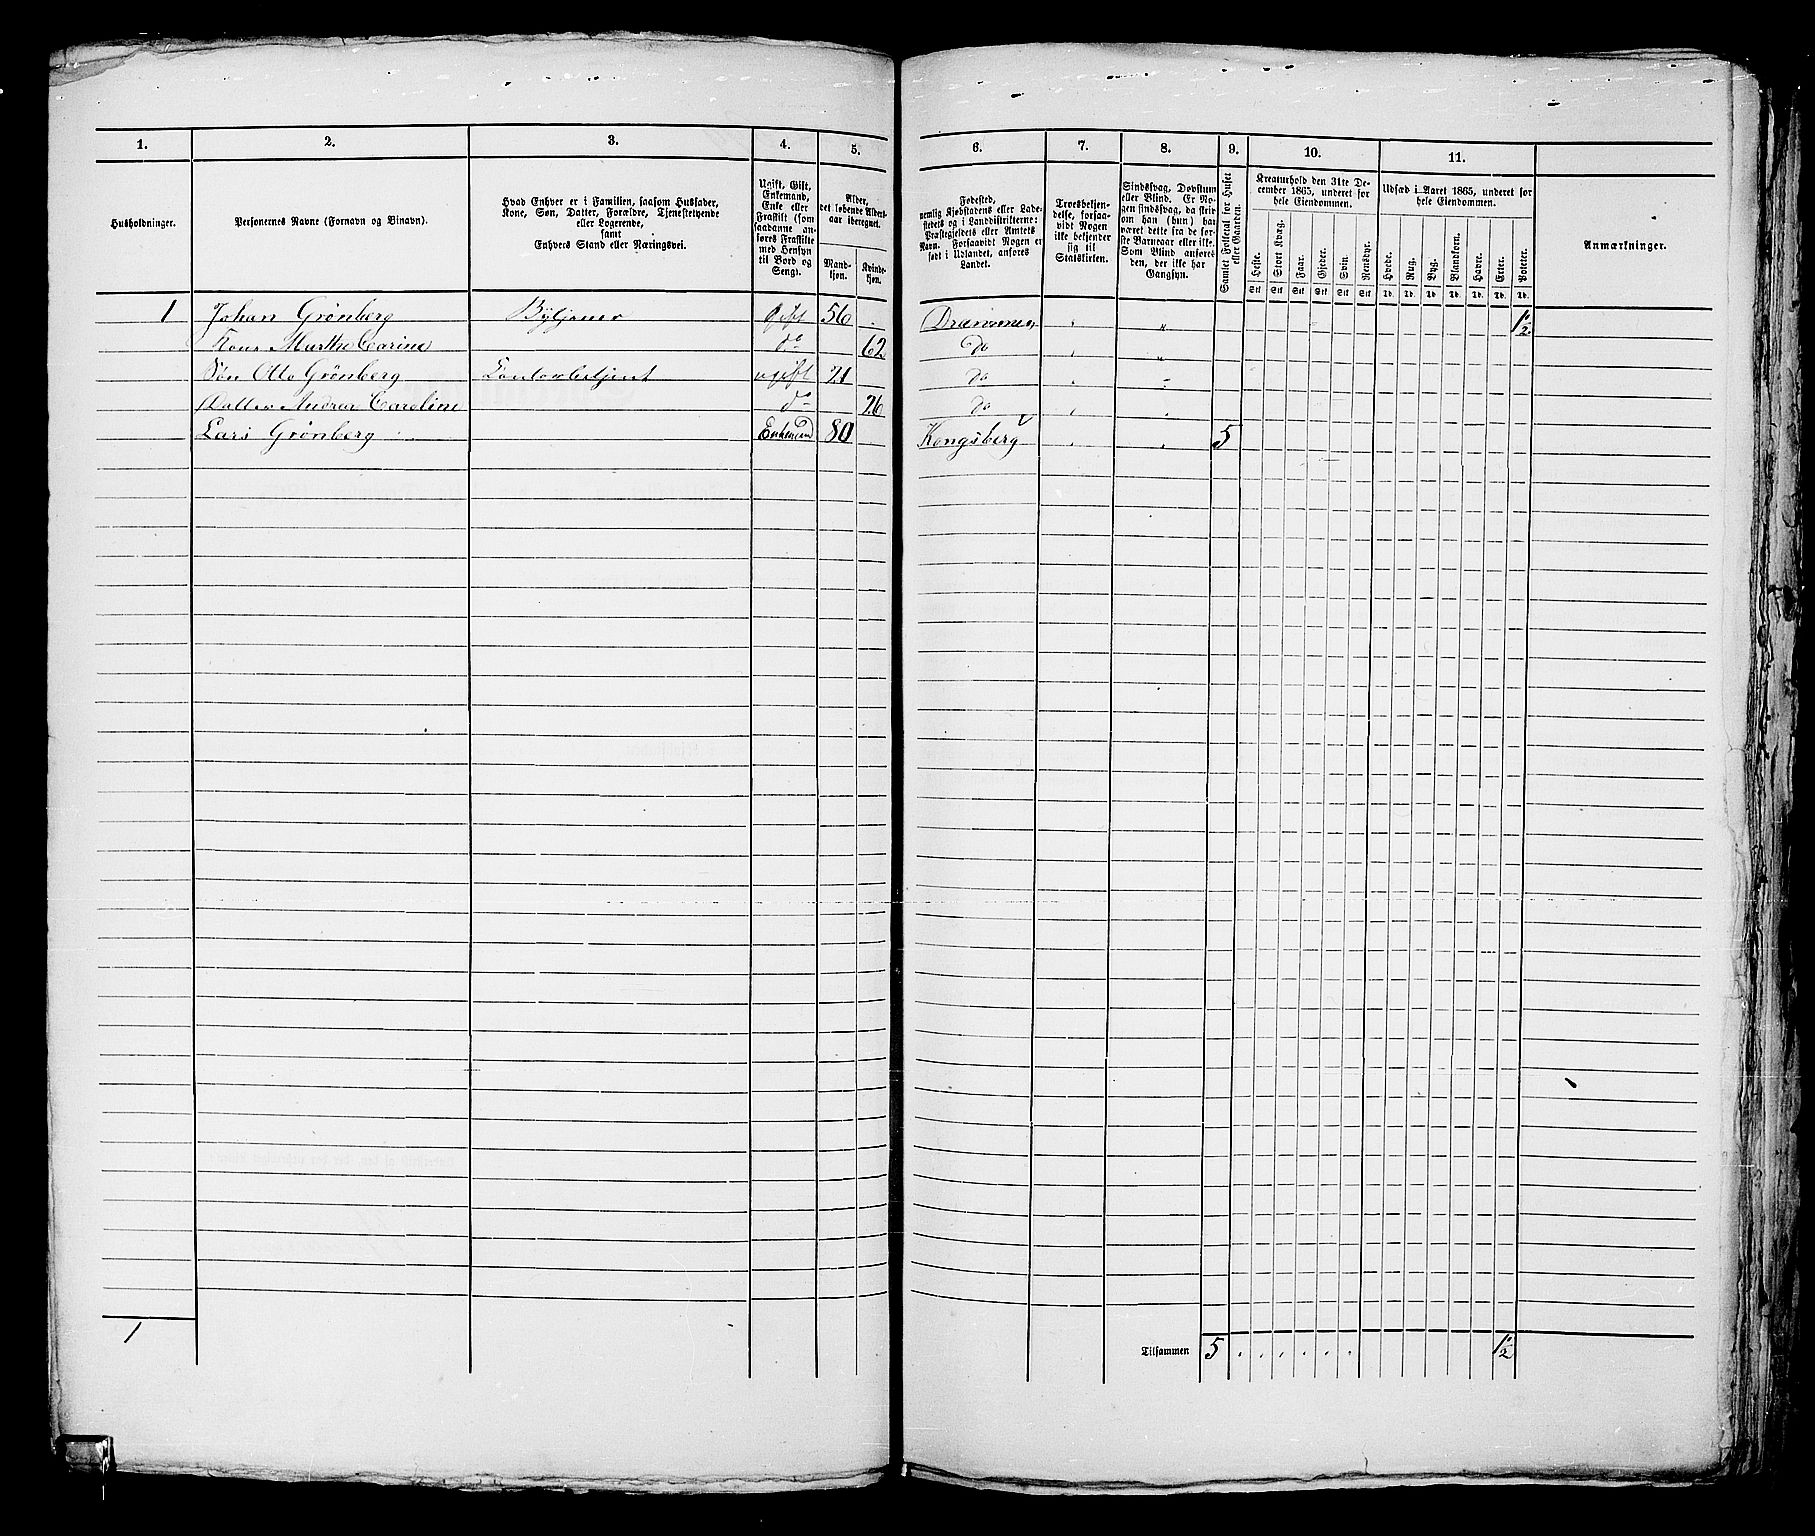 1. 2. 3. 4. 5. 6. 7. 8. 9. 10. 11.
Husholdninger.
Personernes Navne (Fornavn og Binavn).
Hvad Enhver er i Familien, saasom Husfader,
Kone, Søn, Datter, Forældre, Tjenestetyende
eller Logerende,
samt
Enhvers Stand eller Næringsvei.
Ugift, Gift,
Enkemand,
Enke eller
Fraskilt (som
saadanne an-
føres Fraskilte
med Hensyn
til Bord og
Seng).
Alder,
det løbende Alders-
aar iberegnet.
Mand-
kjøn.
Kvinde-
kjøn.
Fødested,
nemlig Kjøbstadens eller Lade-
stedets og i Landdistrikterne:
Præstegjeldets eller Amtets
Navn. Forsaavidt Nogen er
født i Udlandet, anføres
Landet.
Troesbekjen-
delse, forsaa-
vidt Nogen
ikke bekjender
sig til
Statskirken.
Sindssvag, Døvstum
eller Blind. Er No-
gen sindssvag, da skriv
om han (hun) har
været dette fra de for-
ste Barneaar eller ikke.
Som Blind anføres
den, der ikke har
Gangsyn.
Samlet Folketal for Huset
eller Gaarden.
Kreaturhold den 31te De-
cember 1865, underet for
hele Eiendommen.
Heste. Stort Kvæg. Faar. Gjeder. Svin. Rensdyr.
Stk Stk Stk Stk Stk Stk
Udsæd i Aaret 1865, underet for
hele Eiendommen.
Hvede. Rug. Byg. Blandkorn. Havre. Erter. Poteter.
Td. Td. Td. Td. Td. Td. Td.
Anmærkninger.
1 Johan Grønberg Bytjener Gift 56 Drammen 1/2
Kone Marthe Carine do 62 do
Søn Otto Grønberg Contorbetjent ugift 21 do
Datter Andrea Caroline do 26 do
Lars Grønberg Enkemand 80 Kongsberg 5
1 Tilsammen 5 1/2